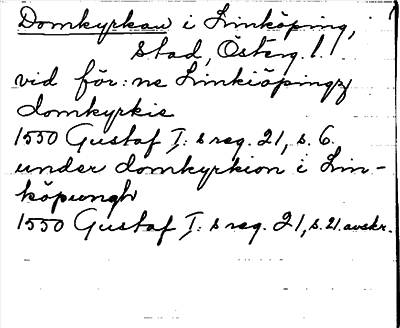 Domkyrkan i Linköping,
stad, Österg. l.
vid för:ne Linkiöpingz
domkyrkie
1550 Gustaf I:s reg. 21, s. 6.
under domkyrkion i Lin-
köpungh
1550 Gustaf I:s reg. 21, s. 21. avskr.